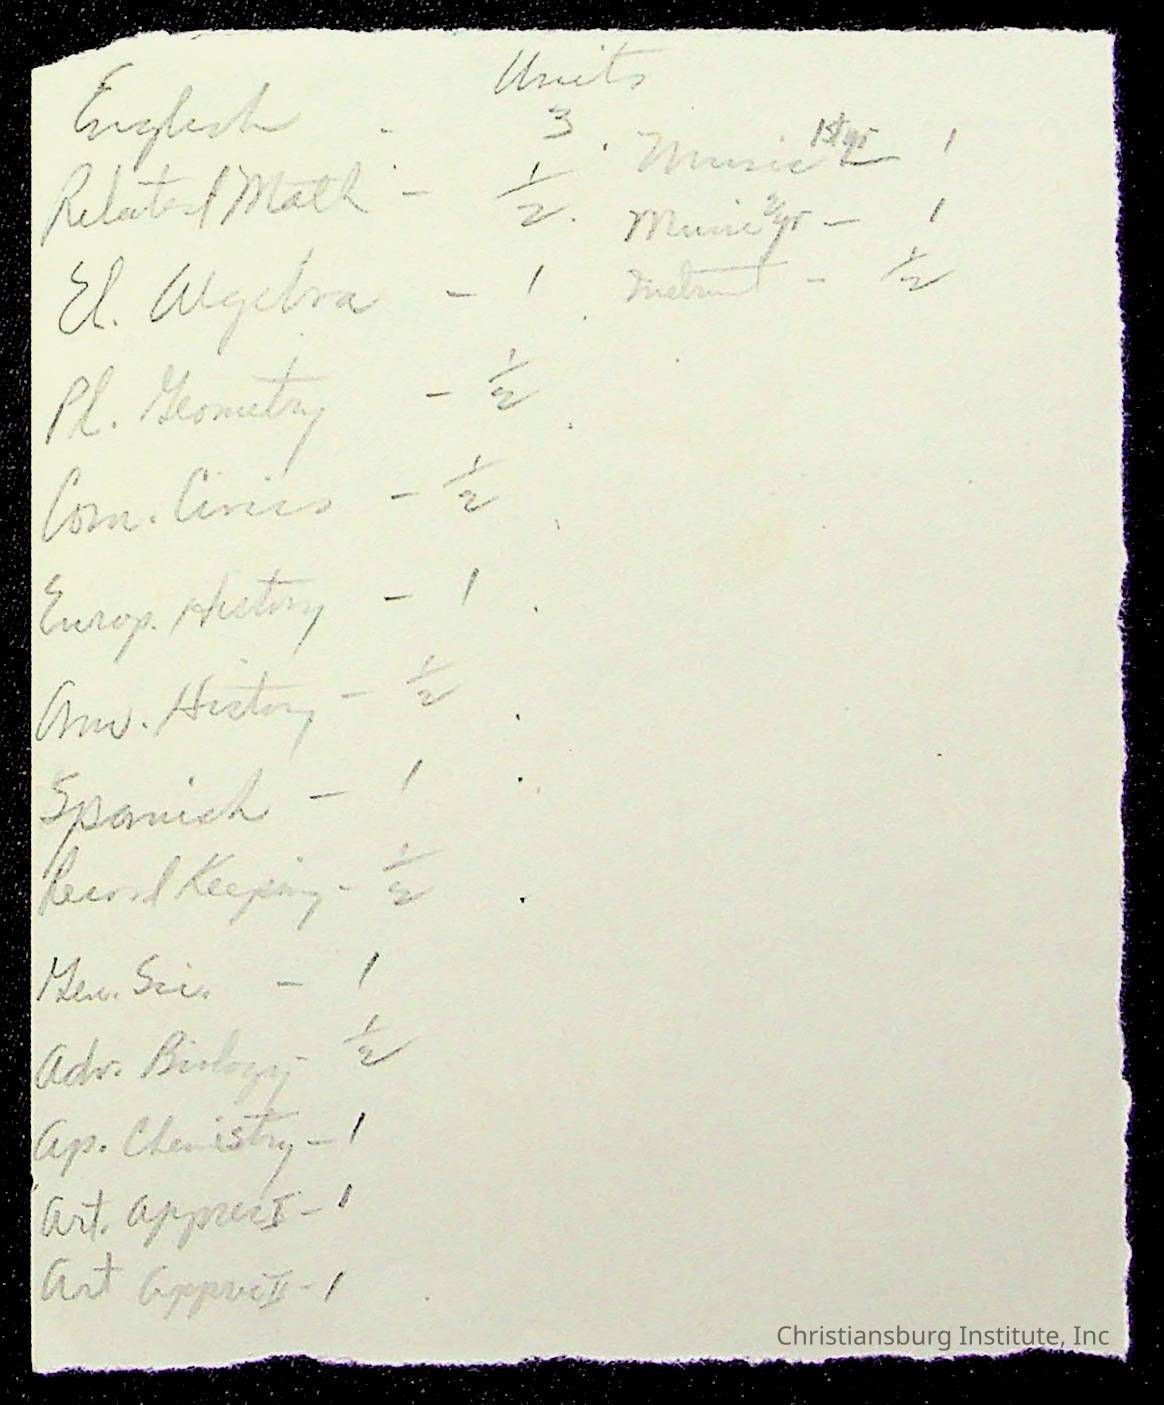 Units
English - 3
Related Math - 1/2
El. Algebra - 1
Pl. Geometry - 1/2
Com. Civics - 1/2
Europ. History - 1
Am. History - 1/2
Spanish - 1
Record Keeping - 1/2
Gen. Sci. - 1
Adv. Biology - 1/2
Ap. Chemistry - 1
Art. Apprec I - 1
Art Apprec II - 1
Music 1st yr - 1
Music 2 yr - 1
- 1/2
Christiansburg Institute, Inc